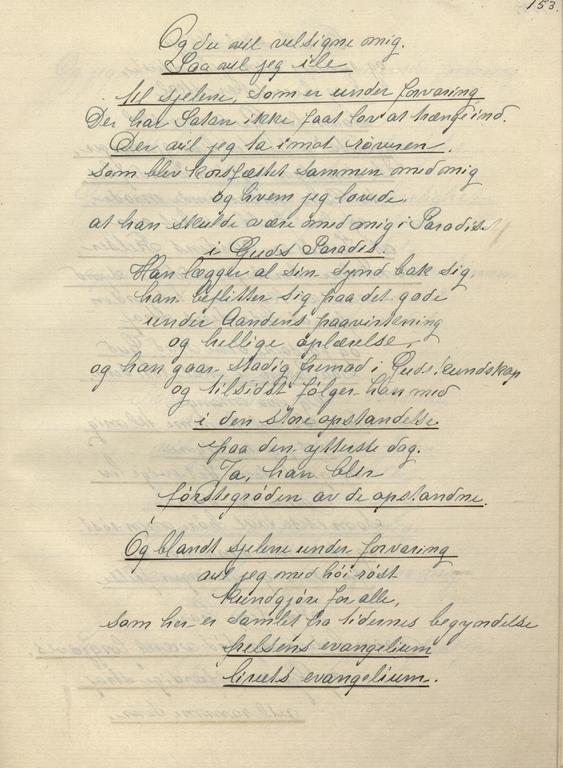 153.
Og du vil velsigne mig.
Saa vil jeg ile
til sjelene, som er under forvaring,
Der har Satan ikke faat lov at trænge ind.
Der vil jeg ta imot røveren,
som blev korsfæstet sammen med mig
og hvem jeg lovede,
at han skulde være med mig i Paradiset
i Guds Paradis.
Han lægger al sin synd bak sig,
han beflitter sig paa det gode
under Aandens paavirkning
og hellige oplærelse,
og han gaar stadig fremad i Guds kundskap
og tilsidst følger han med
i den store opstandelse
paa den ytterste dag.
Ja, han blir
førstegrøden av de opstandne.
Og blandt sjelene under forvaring
vil jeg med høi røst
kundgjøre for alle,
som her er samlet fra tidernes begyndelse
frelsens evangelium
livets evangelium.